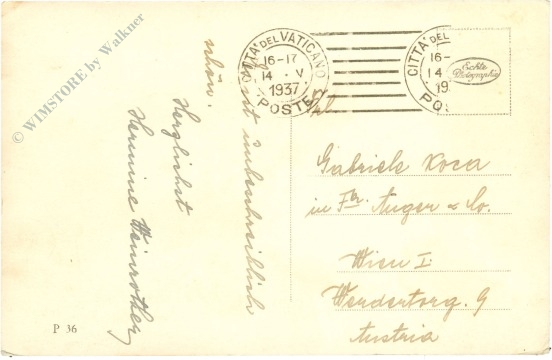 © WIMSTORE by Walkner
CITTÀ DEL VATICANO
16-17
14 V
1937
POSTE
CITTÀ DEL
16-
14
19
POS
Echte
Photographie
ist unbeschreiblich
schön.
Herzlichst
Hermine Weinrother
Gabriele Koca
in Fa. Auger & Co.
Wien I
Werdertorg. 9
Austria
P 36